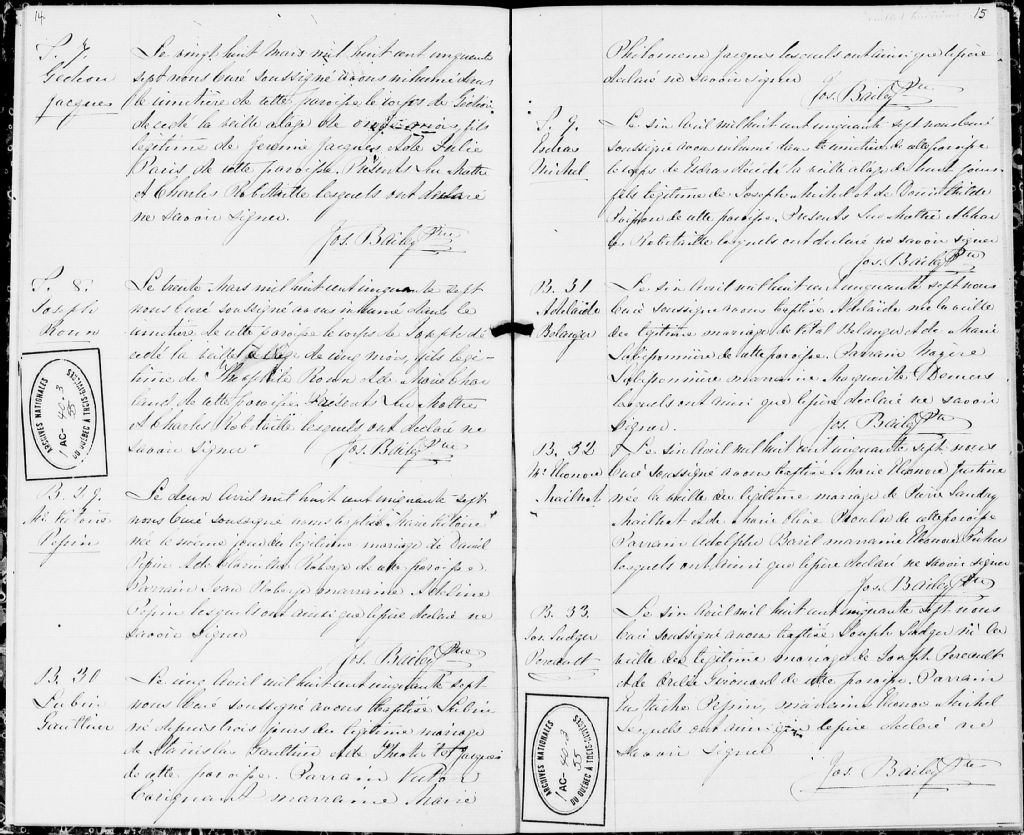 14
S. 7.
Gédéon
Jacques
Le vingt huit Mars mil huit cent cinquante
sept nous Curé soussigné avons inhumé dans
le cimetière de cette paroisse le corps de Gédéon
décédé la veille a l'age de onze mois, fils
légitime de Jérémie Jacques & de Julie
Paris de cette paroisse. Présents Luc Mathe
et Charles Robitaille lesquels ont déclaré
ne savoir signer.
Jos. Bailey Ptre
S. 8.
Joseph
Rouin
Le trente Mars mil huit cent cinquante sept
nous Curé soussigné avons inhumé dans le
cimetière de cette paroisse le corps de Joseph dé
cédé la veille a l'age de cinq mois, fils légi-
time de Théophile Rouin & de Marie
de cette paroisse Présents Luc Mathe
et Charles Robitaille lesquels ont déclaré ne
savoir signer
Jos. Bailey Ptre
ARCHIVES NATIONALES
AC- 40-3
55
DU QUÉBEC À TROIS-RIVIÈRES
B. 29.
Me Victoire
Pepin
Le deux Avril mil huit cent cinquante sept
nous Curé soussigné avons baptisé Marie Victoire
née le même jour du légitime mariage de David
Pepin & de Roberge de cette paroisse.
Parrain Jean Roberge marraine Adeline
Pepin lesquels ont ainsi que le père déclaré ne
savoir signer
Jos. Bailey Ptre
B. 30
Lubin
Gaulthier
Le cinq Avril mil huit cent cinquante sept
nous Curé soussigné avons baptisé Lubin
né depuis trois jours du légitime mariage
de Stanislas Gaulthier & de Jacques
de cette paroisse. Parrain
Corignant marraine Marie
15
Philomene Jacques lesquels ont ainsi que le père
déclaré ne savoir signer
Jos. Bailey Ptre
S. 9.
Esdras
Michel
Le six Avril mil huit cent cinquante sept nous Curé
soussigné avons inhumé dans le cimetière de cette paroisse
le corps de Esdras décédé la veille a l'age de huit jours
fils légitime de Joseph Michel & de
de cette paroisse. Presents Luc Mathe & Char
les Robitaille lesquels ont déclaré ne savoir signer
Jos. Bailey Ptre
B. 31
Adélaïde
Belanger
Le six Avril mil huit cent cinquante sept nous
Curé soussigné avons baptisé Adélaïde née la veille
du légitime mariage de Vital Belanger & de Marie
Laliponnière de cette paroisse. Parrain Nazère
Laliponnière marraine Marguerite Demers
lesquels ont ainsi que le père déclaré ne savoir
signer.
Jos. Bailey Ptre
B. 32
Me Eleonore
Mailhot
Le six Avril mil huit cent cinquante sept nous
Curé soussigné avons baptisé Marie Eleonore Justine
née la veille du légitime mariage de Pierre Landry
Mailhot & de Marie Olive Proulx de cette paroisse
Parrain Adolphe Baril marraine Eleonore Pécher
lesquels ont ainsi que le père déclaré ne savoir signer
Jos. Bailey Ptre
B. 33.
Jos. Ludger
Pereault
Le six Avril mil huit cent cinquante sept nous
Curé soussigné avons baptisé Joseph Ludger né la
veille du légitime mariage de Joseph Pereault
& de Girouard de cette paroisse. Parrain
Pepin, marraine Eleonore Michel
Lesquels ont ainsi que le père déclaré ne
savoir signer
Jos. Bailey Ptre
ARCHIVES NATIONALES
AC- 40-3
55
DU QUÉBEC À TROIS-RIVIÈRES